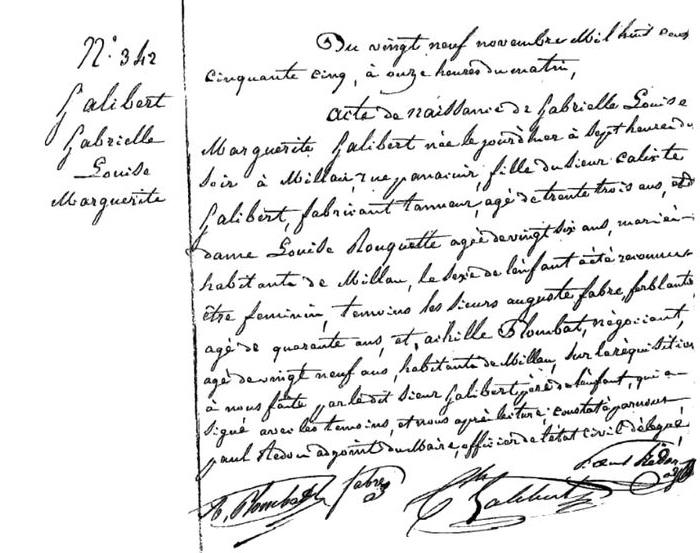 N.° 342
Galibert
Gabrielle
Louise
Marguerite
Du vingt neuf novembre Mil huit cent
cinquante cinq, à onze heures du matin,
acte de naissance de Gabrielle Louise
Marguerite Galibert née le jour d'hier à sept heures du
soir à Millau, rue, fille du sieur calixte
Galibert, fabricant tanneur, agé de trente trois ans, et de
dame Louise Rouquette agée de vingt six ans, mariés
habitants de Millau, le sexe de l'enfant a été reconnu
être feminin, temoins les sieurs auguste fabre, ferblantier
agé de quarante ans, et, achille Plombat, négociant,
agé de vingt neuf ans, habitants de Millau, sur la réquisition
à nous faite par le dit sieur Galibert, père de l'enfant, qui a
signé avec les temoins, et nous après lecture, constaté par nous
paul Redon adjoint du Maire, officier de l'état civil délégué,
A. Plombat fabre Galibert Paul Redon